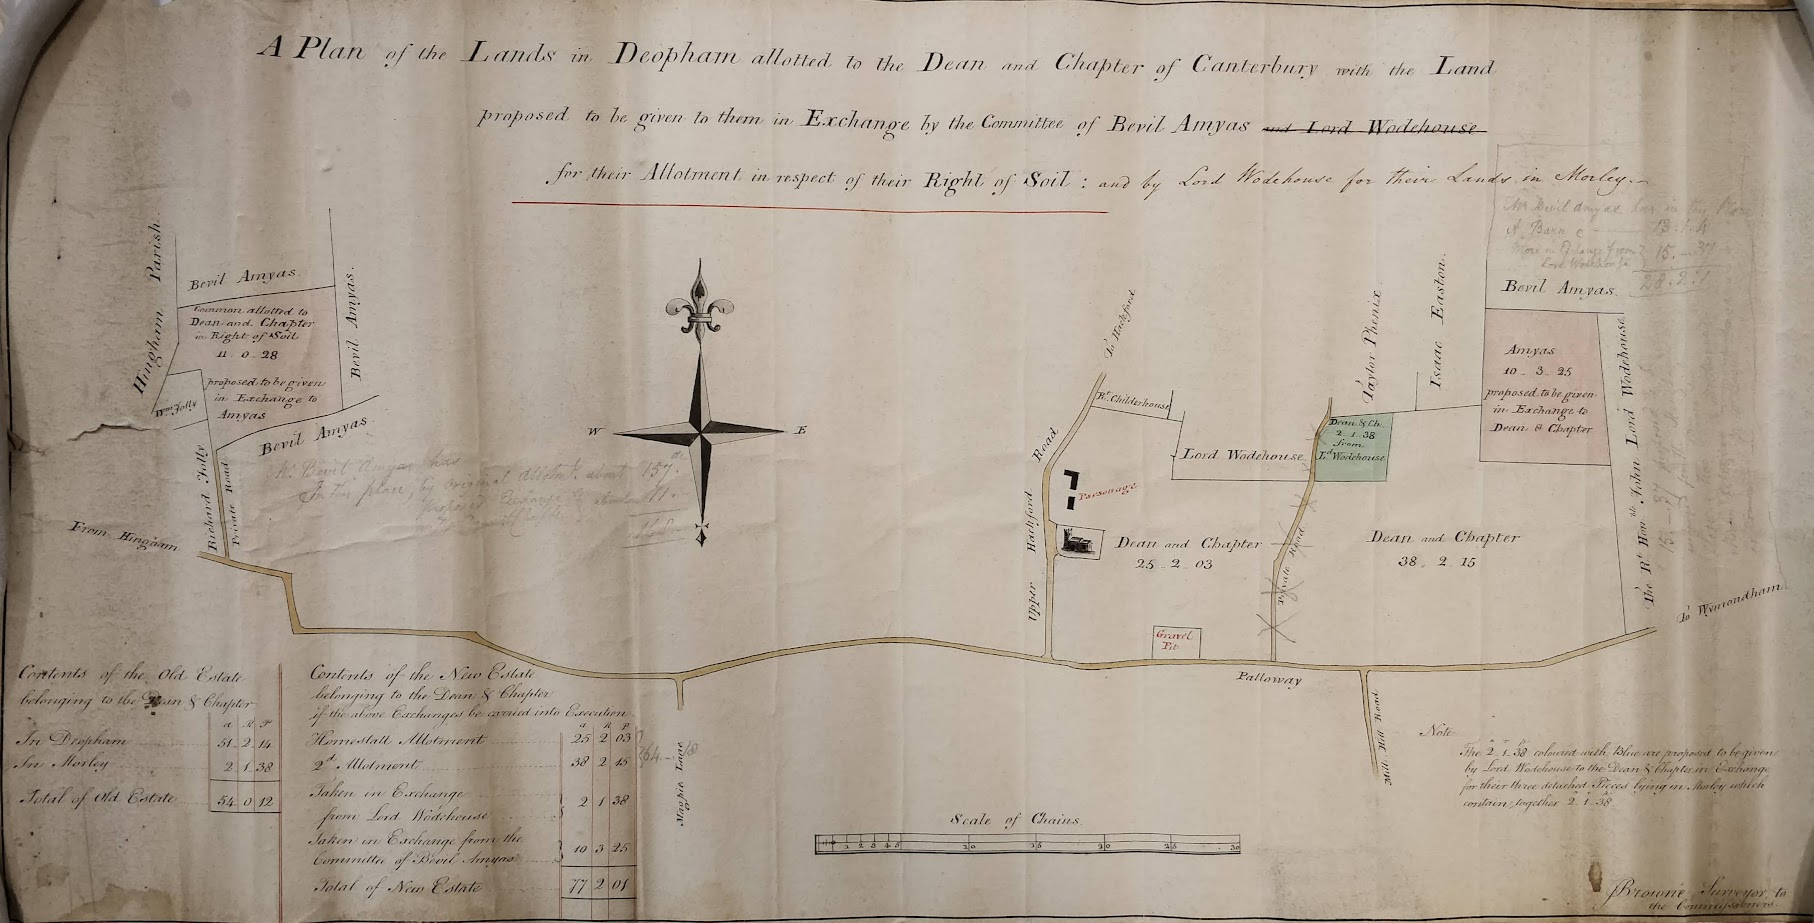 A Plan of the Lands in Deopham allotted to the Dean and Chapter of Canterbury with the Land
proposed to be given to them in Exchange by the Committee of Bevil Amyas and Lord Wodehouse
for their Allotment in respect of their Right of Soil : and by Lord Wodehouse for their Lands in Morley
Mr Bevil Amyas has in this
A Barn
More in Exchange from
Lord Wodehouse
15 - 37
Hingham Parish
Bevil Amyas
Common allotted to
Dean and Chapter
in Right of Soil
11 . 0 . 28
proposed to be given
in Exchange to
Amyas
Bevil Amyas.
Wm Jolly
Bevil Amyas
Richard Jolly
Private Road
From Hingham
Mr Bevil Amyas has
In this plan, by original Allotmt. about 157
W
E
To Hackford
Upper Hackford Road
Rt. Childerhouse
Parsonage
Lord Wodehouse
Dean & Ch.
2 . 1 . 38
from
Ld. Wodehouse
Taylor Phenix
Isaac Easton.
Bevil Amyas.
Amyas
10 .. 3 .. 25
proposed to be given
in Exchange to
Dean & Chapter
The Rt. Honble. John Lord Wodehouse
Dean and Chapter
25 .. 2 .. 03
Private Road
Dean and Chapter
38 .. 2 .. 15
Gravel
Pit
To Wymondham
Palloway
Mill Hill Road
Magpie Lane
Contents of the Old Estate
belonging to the Dean & Chapter
a R P
In Deopham 51 .. 2 .. 14
In Morley 2 . 1 . 38
Total of Old Estate 54 . 0 . 12
Contents of the New Estate
belonging to the Dean & Chapter
if the above Exchanges be carried into Execution
a R P
Homestall Allotment 25 2 03
2d Allotment 38 2 15
Taken in Exchange
from Lord Wodehouse 2 1 38
Taken in Exchange from the
Committee of Bevil Amyas 10 3 25
Total of New Estate 77 2 01
Scale of Chains
1 2 3 4 5 10 15 20 25 30
Note
The 2 . 1 . 38 coloured with Blue are proposed to be given
by Lord Wodehouse to the Dean & Chapter in Exchange
for their three detached Pieces lying in Morley which
contain together 2 . 1 . 38
J Browne Surveyor to
the Commissioners